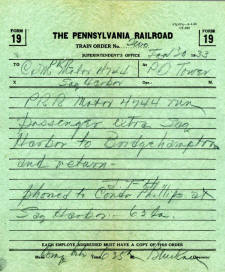 FORM 19
THE PENNSYLVANIA RAILROAD
FORM 19
TRAIN ORDER No.
SUPERINTENDENT'S OFFICE
TO PRR At PD Tower
C&M Motor 4744
Sag Harbor
PRR Motor 4744 run
Passenger Extra Sag
Harbor to Bridgehampton
and return -
phoned to Condr Phillips at
Sag Harbor - 632a
EACH EMPLOYE ADDRESSED MUST HAVE A COPY OF THIS ORDER
Made Time 635 a M